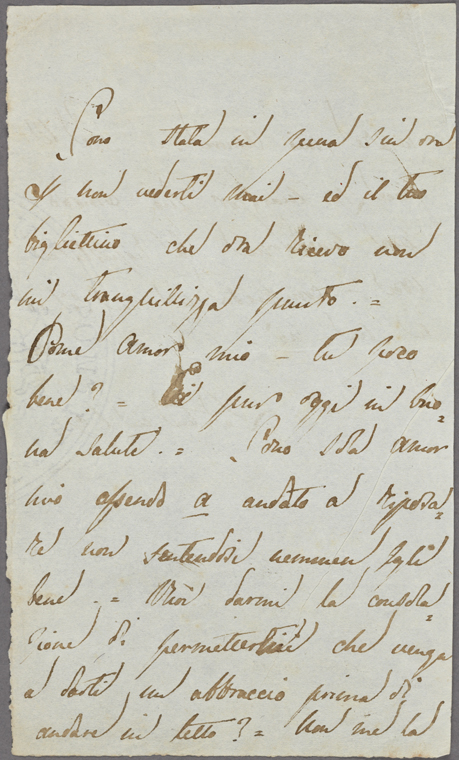 Sono stata in pena sin ora
di non vederti mai – ed il tuo
bigliettino che ora ricevo non
mi tranquillizza punto. =
Come Amor mio – tu poco
bene? = pur oggi in buo=
na salute. = Sono sola Amor
mio essendo A. andato a riposa=
re non sentendosi nemmen Egli
bene. = Vuoi darmi la consola=
zione di permettermi che venga
a darti un abbraccio prima di
andare in letto? = Non me la